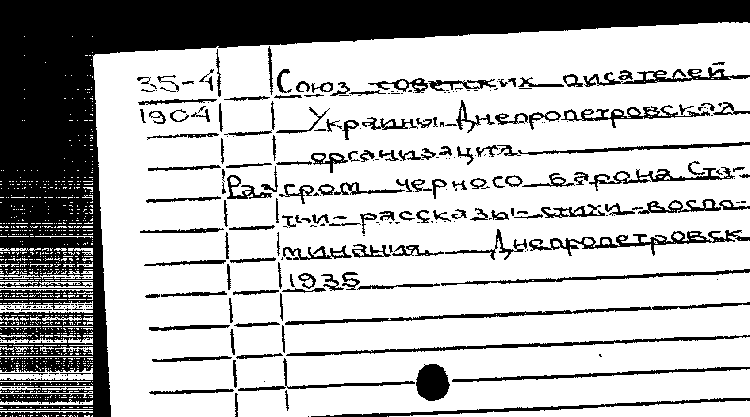 35-4 Союз советских писателей
1904 Украины. Днепропетровская
организация.
Разгром черного барона. Ста-
тьи - рассказы - стихи - воспо-
минания. Днепропетровск
1935